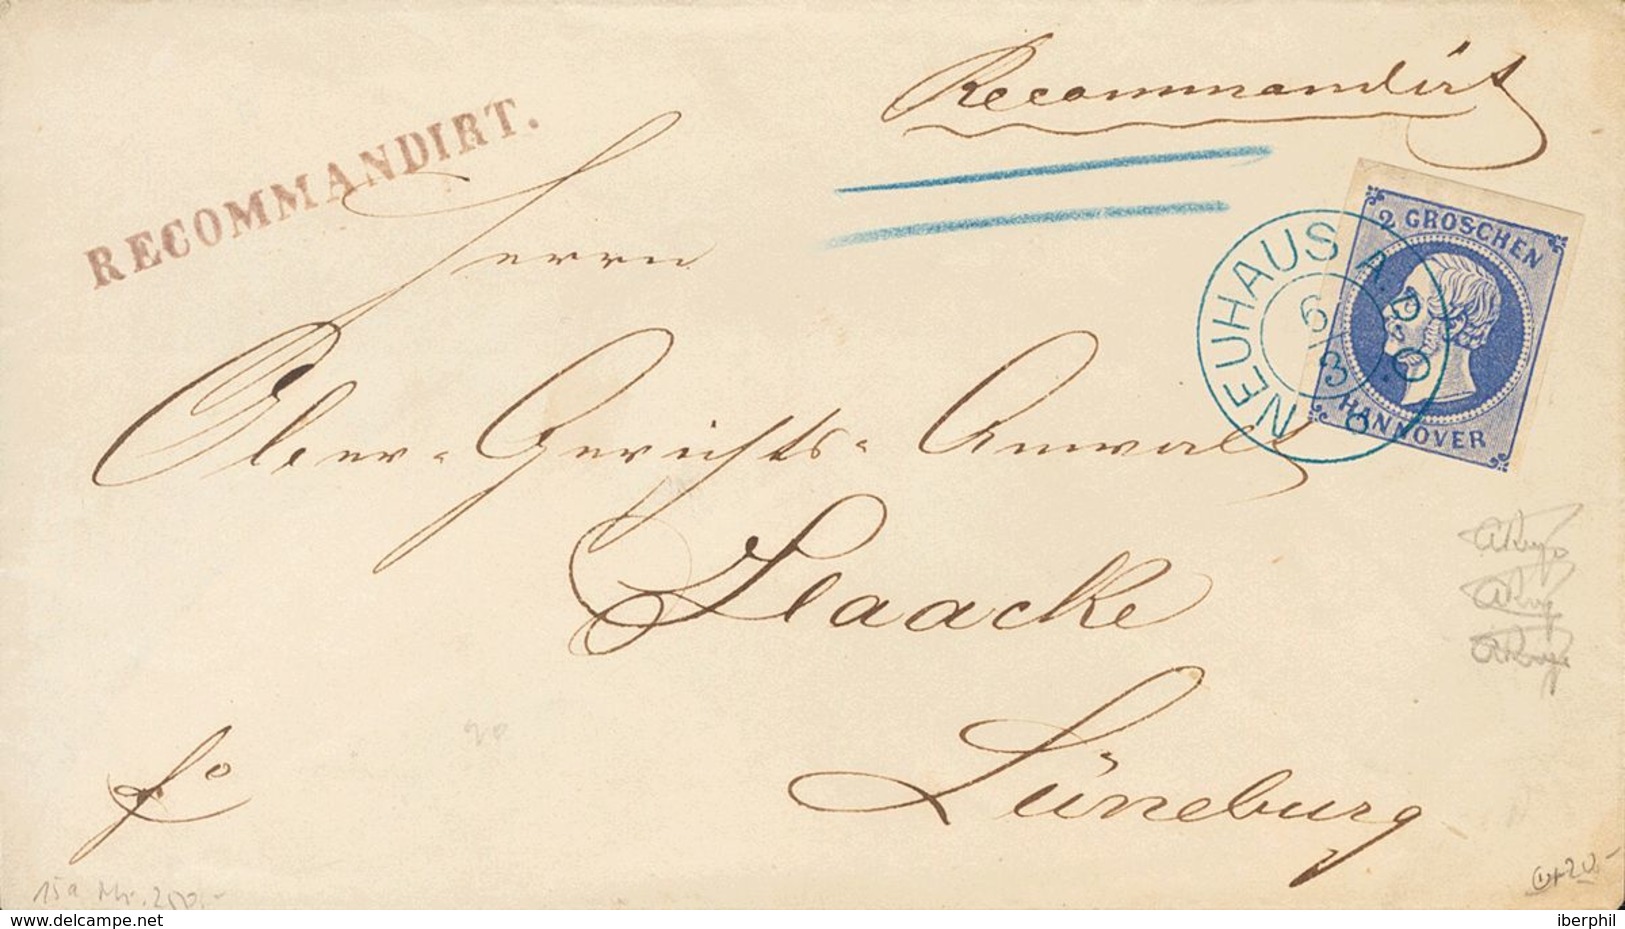 Recommandirt
RECOMMANDIRT.
2 GROSCHEN
HANNOVER
NEUHAUS A. D. O.
6
3
Herrn
Ober-Gerichts-Anwalt
Haacke
Lüneburg
fo
20
15a Mi. 250.-
www.delcampe.net
iberphil